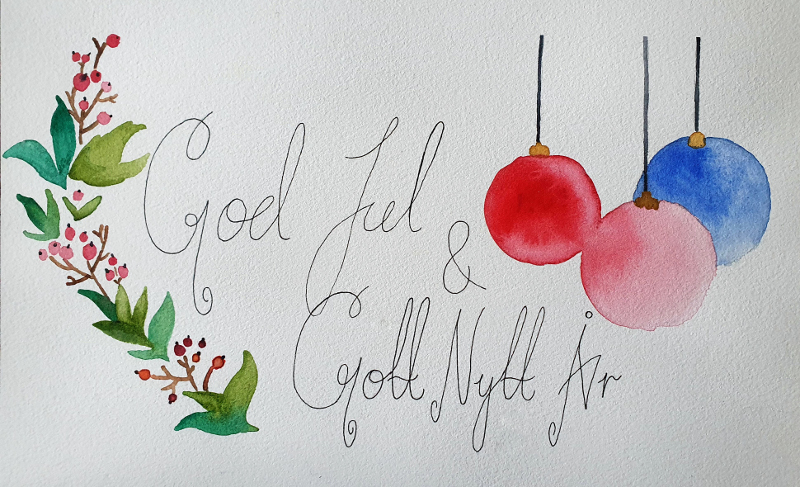 God Jul
&
Gott Nytt År